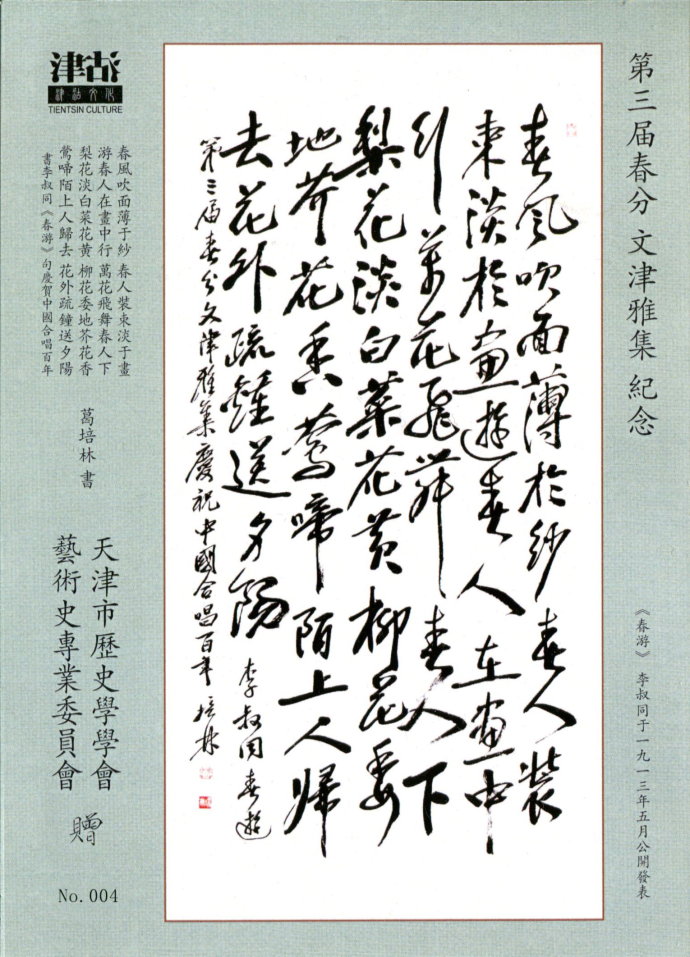 第三届春分 文津雅集 紀念
《春游》 李叔同于一九一三年五月公開發表
春風吹面薄於紗春人裝
束淡於畫遊春人在畫中
行萬花飛舞春人下
梨花淡白菜花黄柳花委
地芥花香鶯啼陌上人歸
去花外疏鐘送夕陽 李叔同春遊
第三届春分文津雅集慶祝中國合唱百年 培林
津沽
津沽文化
TIENTSIN CULTURE
春風吹面薄于紗 春人裝束淡于畫
游春人在畫中行 萬花飛舞春人下
梨花淡白菜花黄 柳花委地芥花香
鶯啼陌上人歸去 花外疏鐘送夕陽
書李叔同《春游》句慶賀中國合唱百年
葛培林 書
天津市歷史學學會
藝術史專業委員會
贈
No. 004